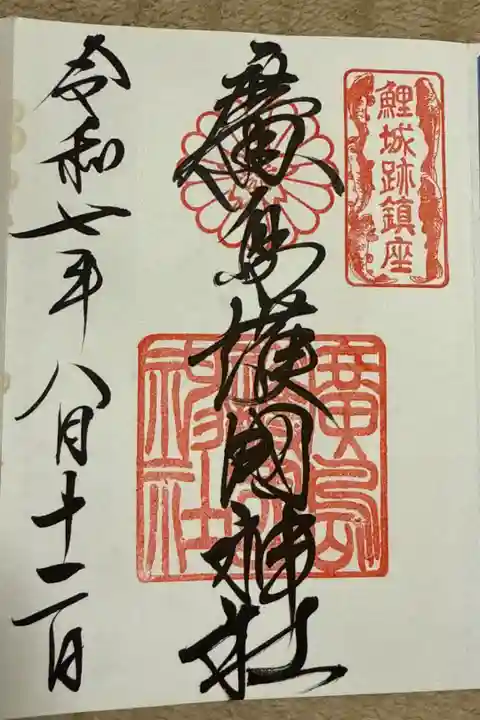 鯉城跡鎮座
廣島護國神社
廣島
護國
神社
令和七年八月十二日